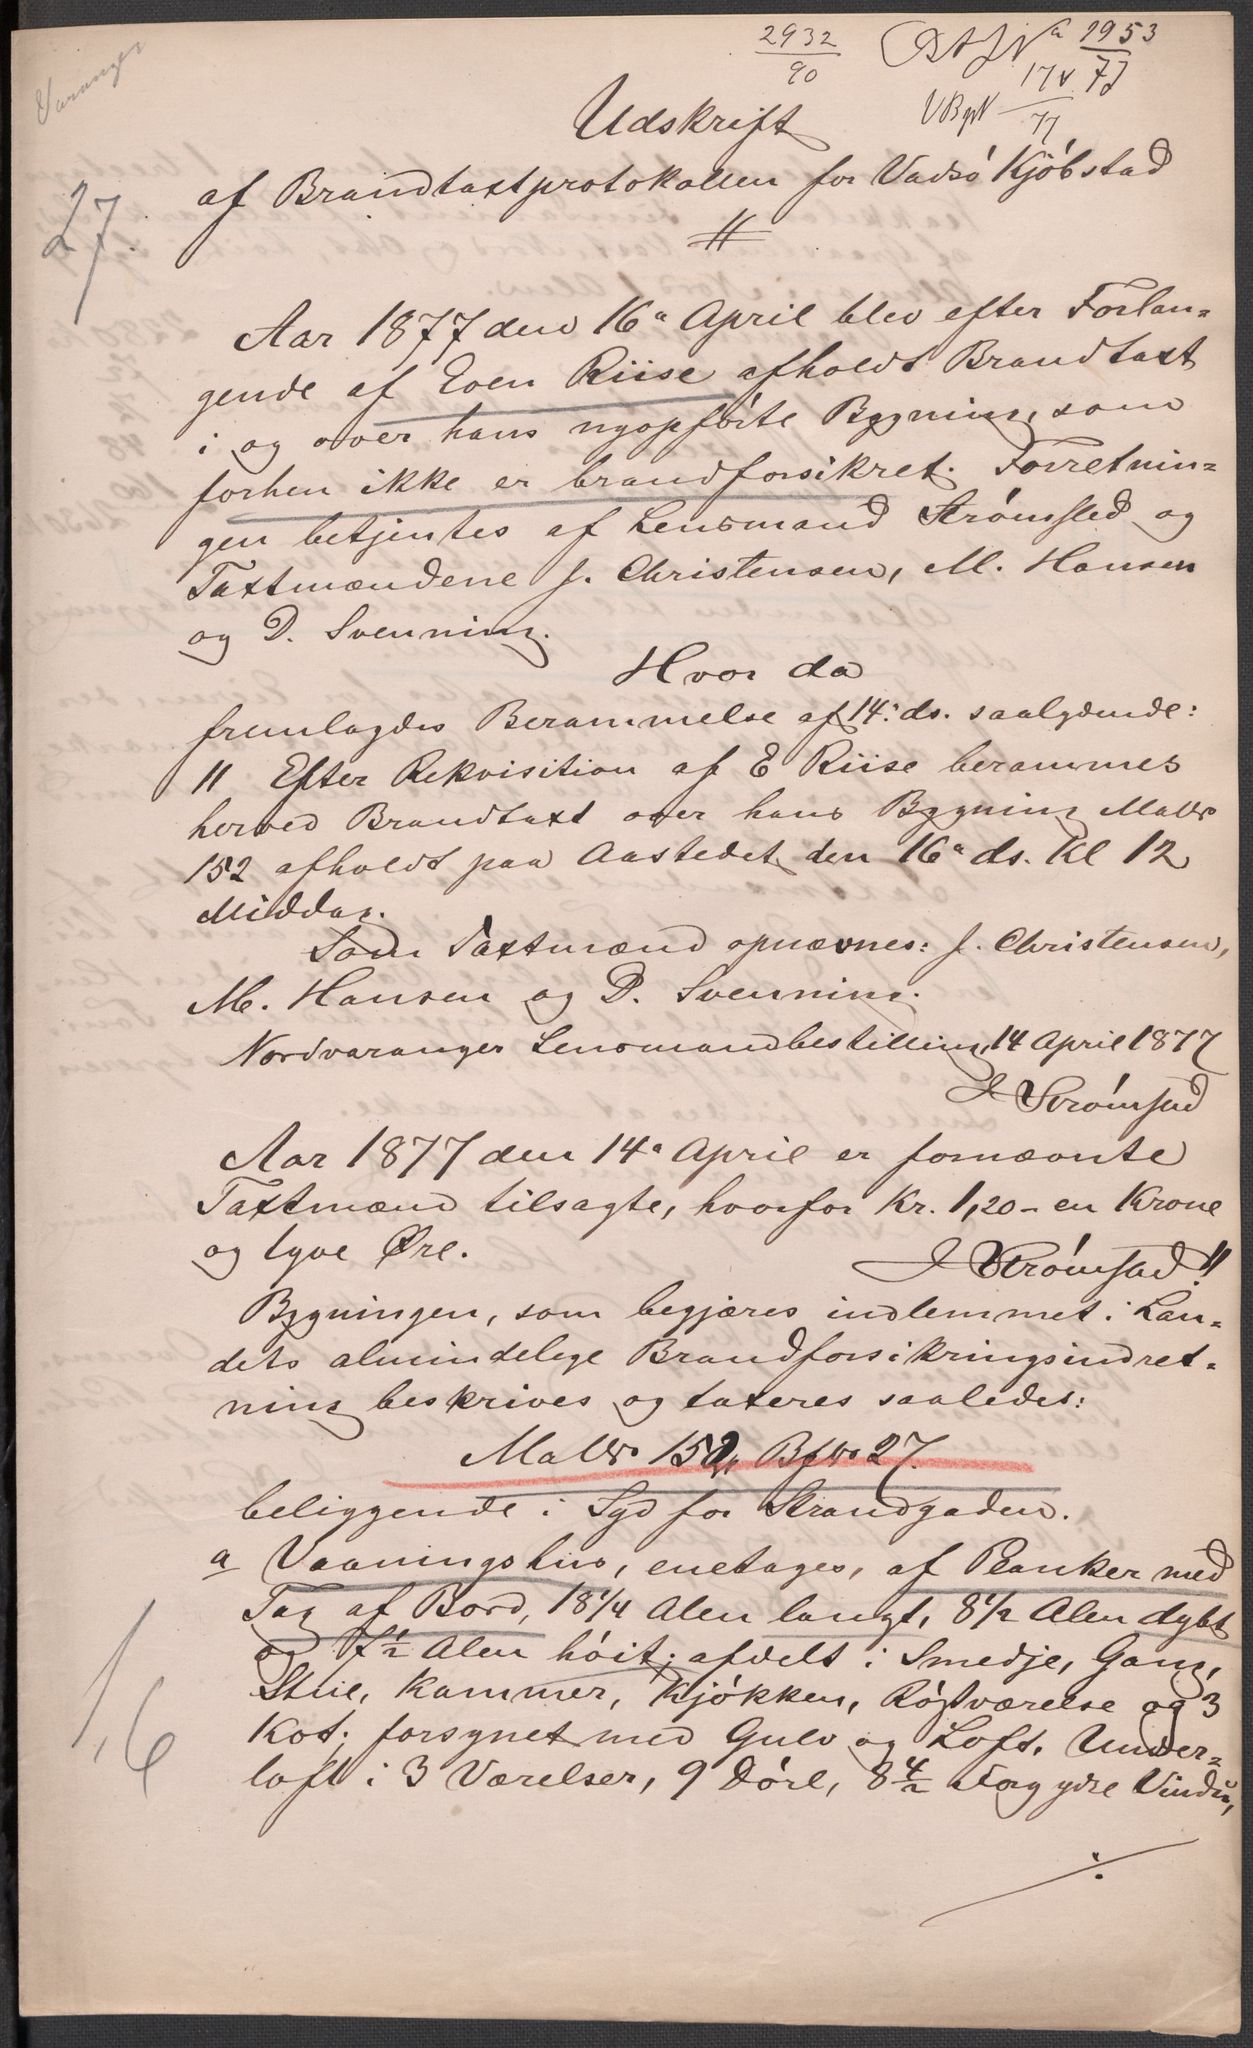 Varanger
2932
90
1953
77
174
77
Udskrift
27.
af Brandtaxtprotokollen for Vadsö Kjöbstad
Aar 1877 den 16de April blev efter Forlan-
gende af Even Riise afholdt Brandtaxt
i og over hans nyopförte Bygning, som
forhen ikke er brandforsikret. Forretnin-
gen betjentes af Lensmand Strömsted og
Taxtmændene J. Christensen, M. Hansen
og D. Svenning.
Hvor da
fremlagdes Berammelse af 14: ds. saalydende:
" Efter Rekvisition af E Riise berammes
herved Brandtaxt over hans Bygning MatNo
152 afholdt paa Aastedet den 16de ds. Kl 12
Middag.
Som Taxtmænd opnævnes: J. Christensen,
M. Hansen og D. Svenning.
Nordvaranger Lensmandbestilling, 14 April 1877
J Strömsted
Aar 1877 den 14de April er fornævnte
Taxtmænd tilsagte, hvorfor Kr. 1,20 - en Krone
og tyve Øre.
J Strömsted "
Bygningen, som begjæres indlemmet i Lan-
dets almindelige Brandforsikringsindret-
ning beskrives og taxeres saaledes:
MatNo 152, BfNo 27.
beliggende i Syd for Strandgaden.
a Vaaningshus, enetages, af Planker med
Tag af Bord, 18 1/4 Alen langt, 8 1/2 Alen dybt
og 7 1/2 Alen höit; afdelt i Smedje, Gang,
Stue, Kammer, Kjökken, Röstværelse og 3
Kot; forsynet med Gulv og Loft. Under-
loft i 3 Værelser, 9 Döre, 8 4/2 Fag ydre Vindu,
1,6